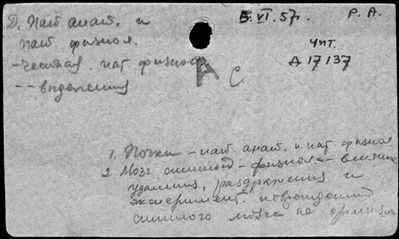 Д. Пат. анат. и
пат. физиол.
- частная. пат. физиол.
- - выделения
5.VI.57.
Р. А.
Чит.
Д 17137
А С
1. Почки - пат. анат. и пат. физиол
2. Мозг спинной - физиол - влияние
удаления, раздражения и
эксперимент. повреждений
спинного мозга на организм